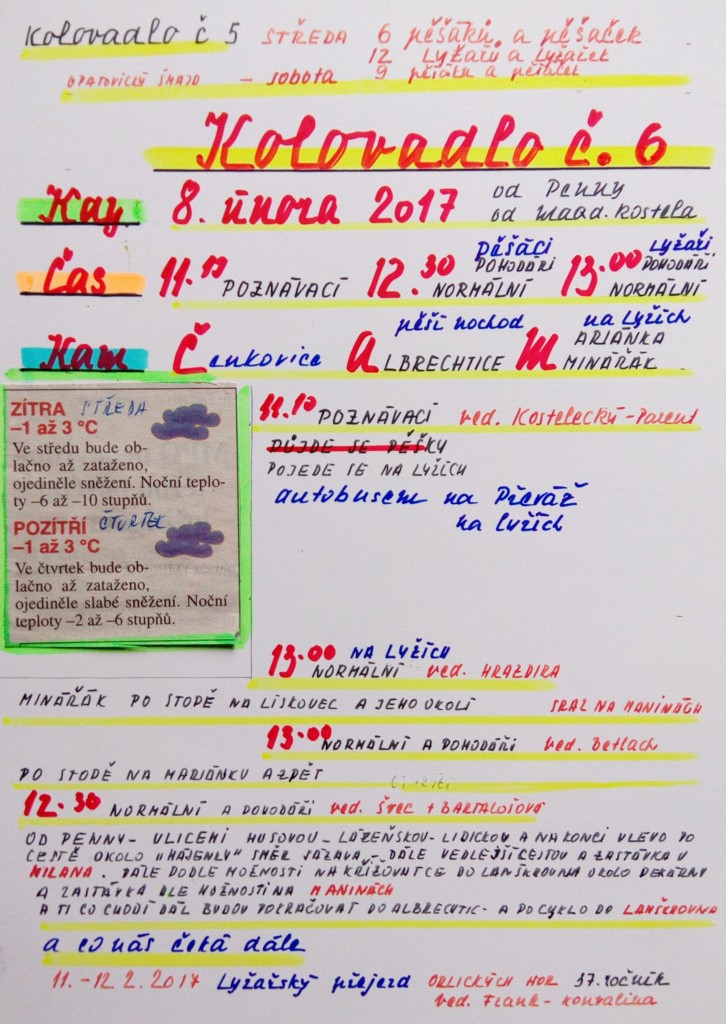 Kolovadlo č 5 STŘEDA 6 pěšáků a pěšaček
12 Lyžařů a Lyžařek
OPATOVICKÝ - sobota 9 pěšáků a pěšaček
Kolovadlo č. 6
Kdy 8. února 2017 od Penny
od maad. kostela
Čas 11.10 POZNÁVACÍ 12.30 Pěšáci POHODÁŘI NORMÁLNÍ 13.00 Lyžaři POHODÁŘI NORMÁLNÍ
Kam Čenkovice pěší pochod ALBRECHTICE na Lyžích MARIÁNKA MINÁŘÁK
ZÍTRA STŘEDA
–1 až 3 °C
Ve středu bude ob-
lačno až zataženo,
ojediněle sněžení. Noční teplo-
ty –6 až –10 stupňů.
POZÍTŘÍ ČTVRTEK
–1 až 3 °C
Ve čtvrtek bude ob-
lačno až zataženo,
ojediněle slabé sněžení. Noční
teploty –2 až –6 stupňů.
11.10 POZNÁVACÍ ved. Kostelecký-Parent
PŮJDE SE PĚŠKY
POJEDE SE NA LYŽÍCH
autobusem na Přívrať
na Lyžích
13.00 NA LYŽÍCH
NORMÁLNÍ ved. HRAZDIRA
MINÁŘÁK PO STOPĚ NA LISKOVEC A JEHO OKOLÍ SRAZ NA MANINÁCH
13.00 NORMÁLNÍ A POHODÁŘI ved. Betlach
PO STOPĚ NA MARIÁNKU A ZPĚT
12.30 NORMÁLNÍ A POHODÁŘI ved. ŠTEC + BARTALOŠOVÁ
OD PENNY- ULICEMI HUSOVOU - LÁZEŇSKOU- LIDICKOU A NA KONCI VLEVO PO
CESTĚ OKOLO "HÁJENKY" SMĚR SÁZAVA - DÁLE VEDLEJŠÍ CESTOU A ZASTÁVKA U
MILANA. DÁLE PODLE MOŽNOSTI NA KŘIŽOVATCE DO LANŠKROUNA OKOLO PEKÁRNY
A ZASTÁVKA DLE MOŽNOSTI NA MANINÁCH
A TI CO CHODÍ DÁL BUDOU POKRAČOVAT DO ALBRECHTIC- A PO CYKLO DO LANŠKROUNA
a co nás čeká dále
11.-12 2.2017 Lyžařský přejezd ORLICKÝCH HOR 37. ročník
ved. Frank- Konvalina